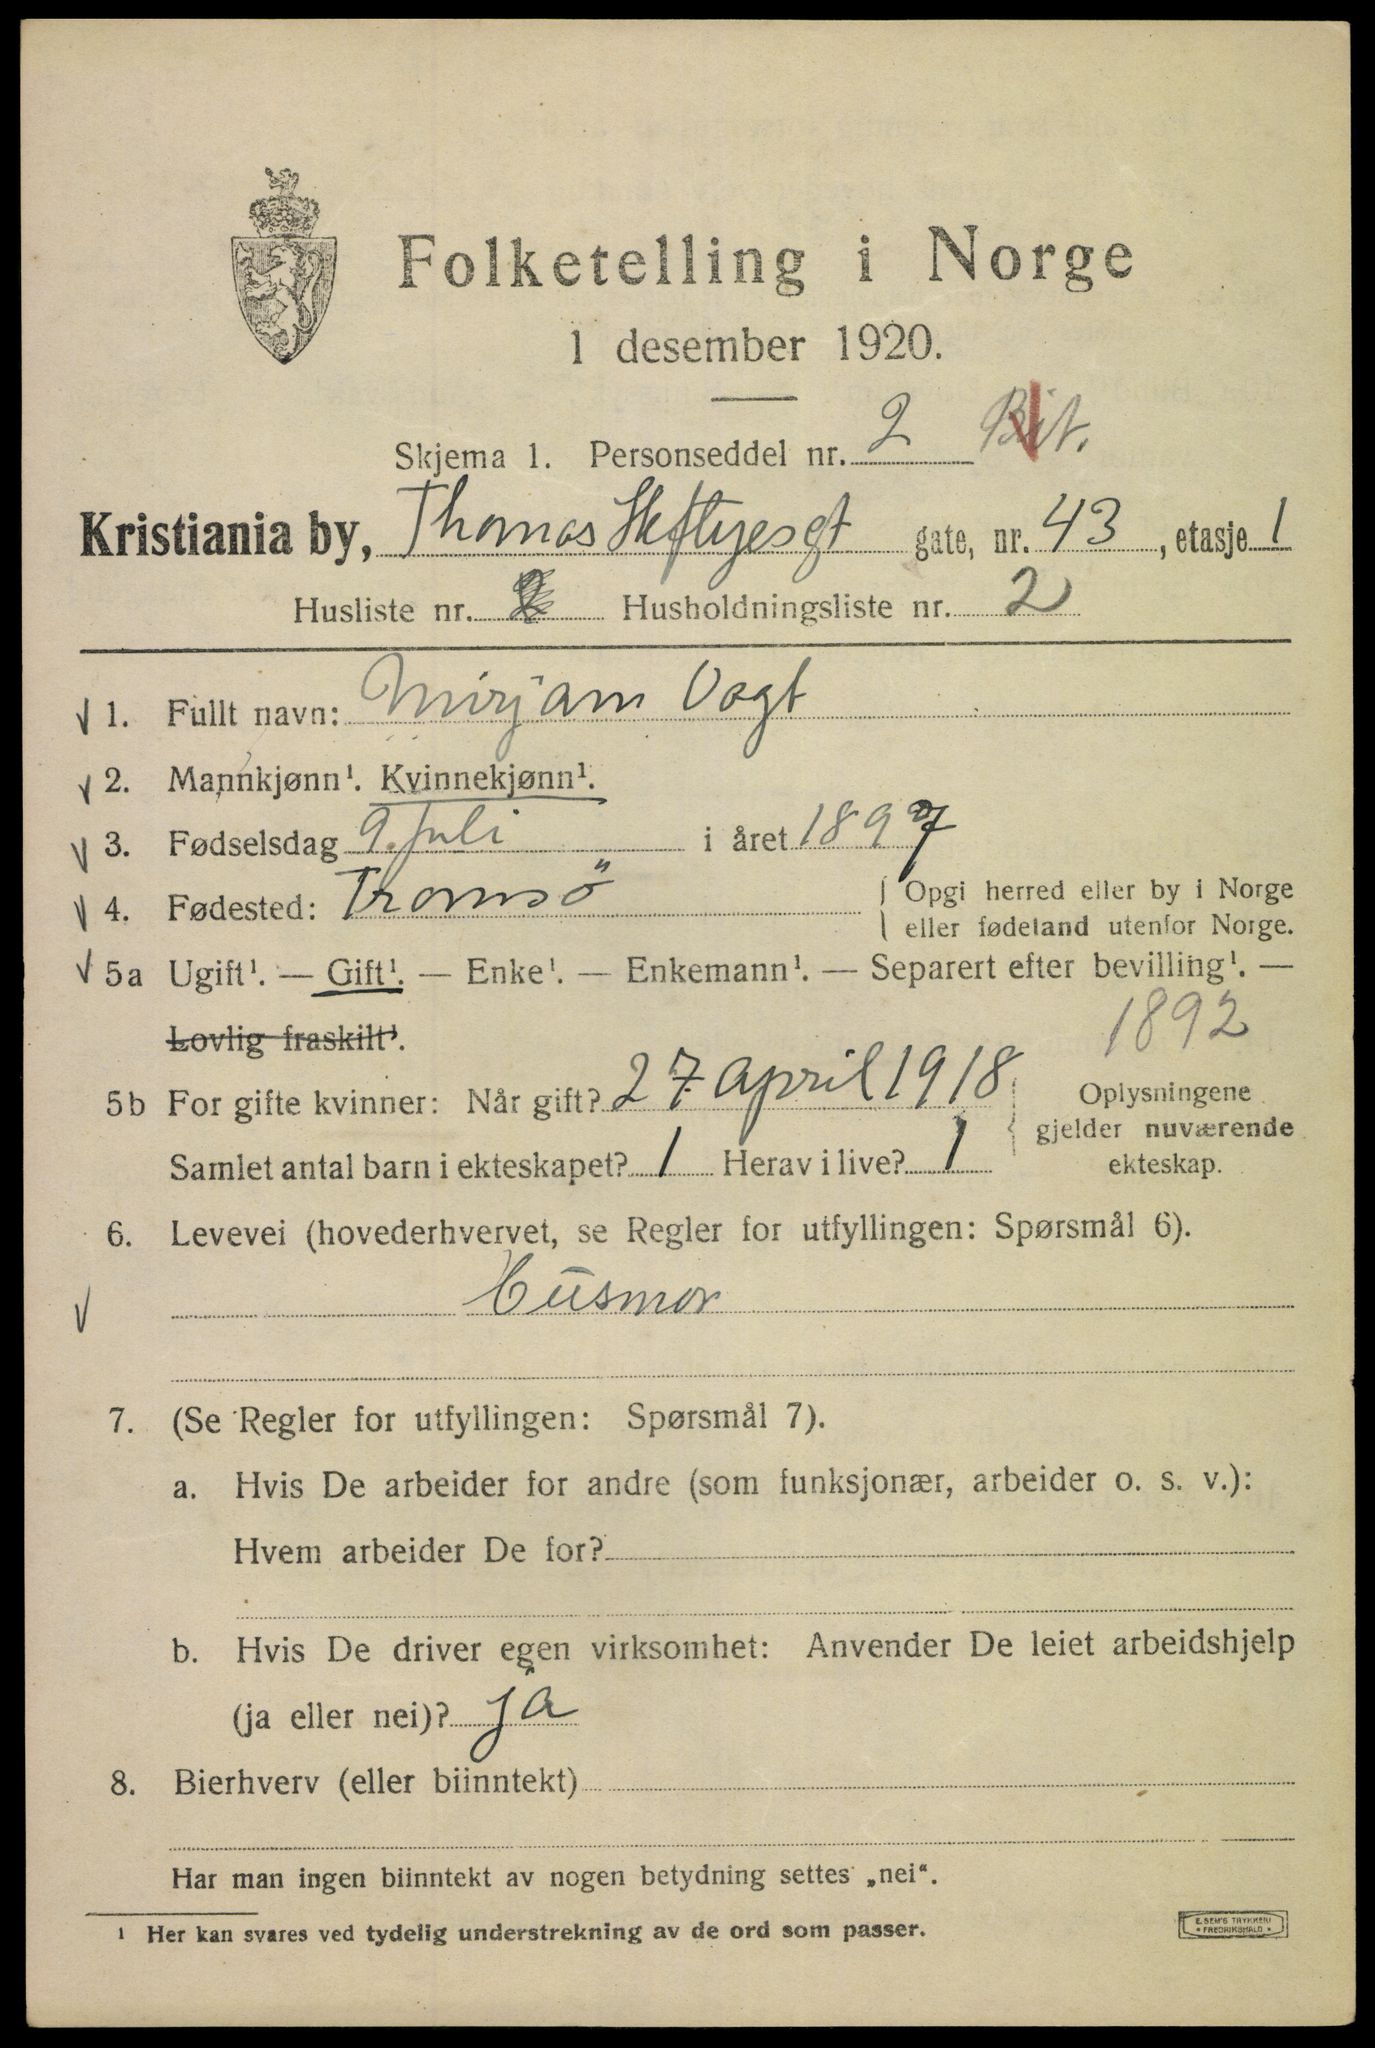 Folketelling i Norge
1 desember 1920.
Skjema 1. Personseddel nr. 2
Kristiania by, Thomas Heftyesgt gate, nr. 43, etasje 1
Husliste nr. 2 Husholdningsliste nr. 2
1. Fullt navn: Mirjam Vogt
2. Mannkjønn¹. Kvinnekjønn¹.
3. Fødselsdag 9. Juli i året 1897
4. Fødested: Tromsö
Opgi herred eller by i Norge
eller fødeland utenfor Norge.
5a Ugift¹. — Gift¹. — Enke¹. — Enkemann¹. — Separert efter bevilling¹. —
Lovlig fraskilt¹.
1892
5b For gifte kvinner: Når gift? 27 april 1918
Samlet antal barn i ekteskapet? 1 Herav i live? 1
Oplysningene
gjelder nuværende
ekteskap.
6. Levevei (hovederhvervet, se Regler for utfyllingen: Spørsmål 6).
Husmor
7. (Se Regler for utfyllingen: Spørsmål 7).
a. Hvis De arbeider for andre (som funksjonær, arbeider o. s. v.):
Hvem arbeider De for?
b. Hvis De driver egen virksomhet: Anvender De leiet arbeidshjelp
(ja eller nei)? ja
8. Bierhverv (eller biinntekt)
Har man ingen biinntekt av nogen betydning settes „nei“.
¹ Her kan svares ved tydelig understrekning av de ord som passer.
E. SEM'S TRYKKERI
* FREDRIKSHALD *